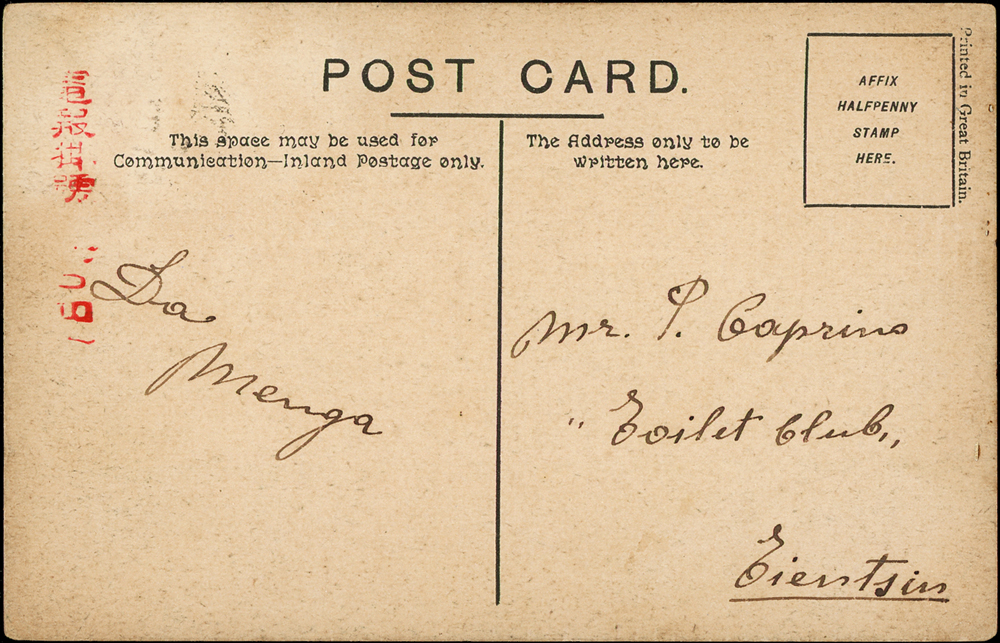 POST CARD.
This space may be used for
Communication—Inland Postage only.
The Address only to be
written here.
AFFIX
HALFPENNY
STAMP
HERE.
Printed in Great Britain.
Da
Menga
Mr. P. Caprino
"Toilet Club„
Tientsin